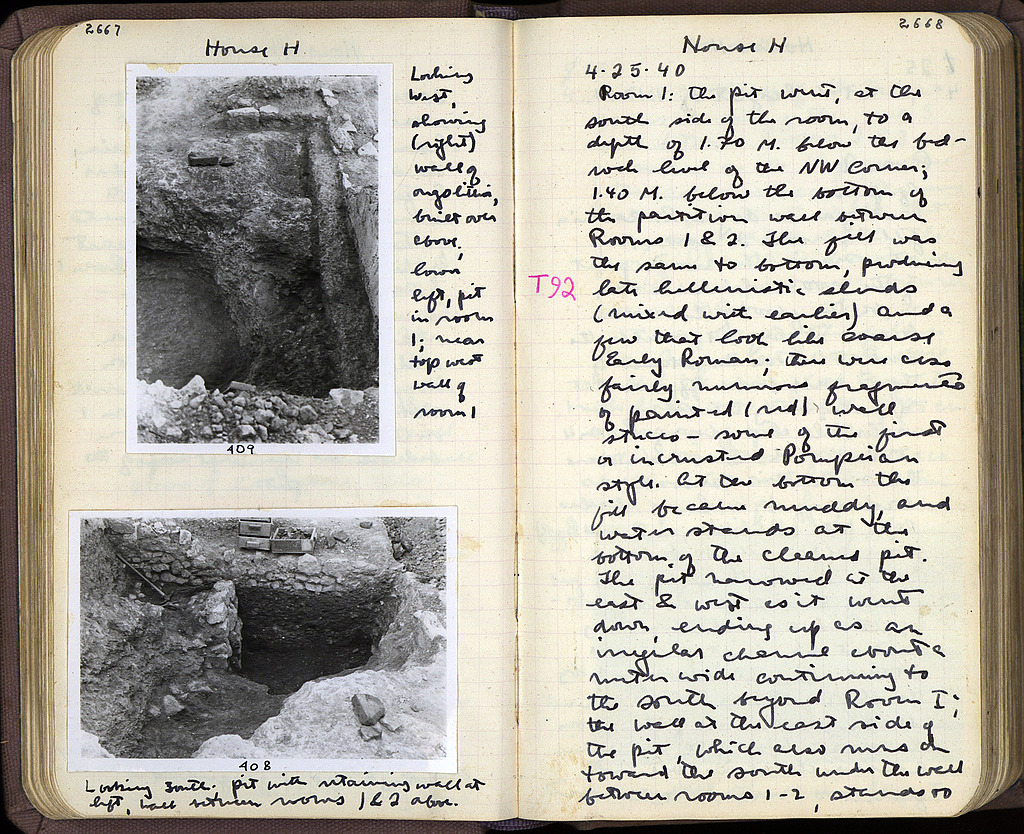 2667
House H
Looking
West,
showing
(right)
wall of
orgolithis,
built over
above,
lower
left, pit
in room
1; near
top west
wall of
room 1
409
408
Looking South. pit with retaining wall at
left, wall between rooms 1 & 2 above.
2668
House H
4.25.40
Room 1: the pit went, at the
south side of the room, to a
depth of 1.70 M. below the bed-
rock level of the NW Corner;
1.40 M. below the bottom of
the partition wall between
Rooms 1 & 2. The fill was
the same to bottom, producing
T92
late hellenistic sherds
(mixed with earlier) and a
few that look like coarse
Early Roman; there were also
fairly numerous fragments
of painted (red) wall
stucco – some of the first
or incrusted Pompeian
style. At the bottom the
fill became muddy, and
water stands at the
bottom of the cleaned pit.
The pit narrowed at the
east & west as it went
down, ending up as an
irregular channel about a
meter wide continuing to
the south beyond Room I;
the wall at the east side of
the pit, which also runs on
toward the south under the wall
between rooms 1-2, stands to